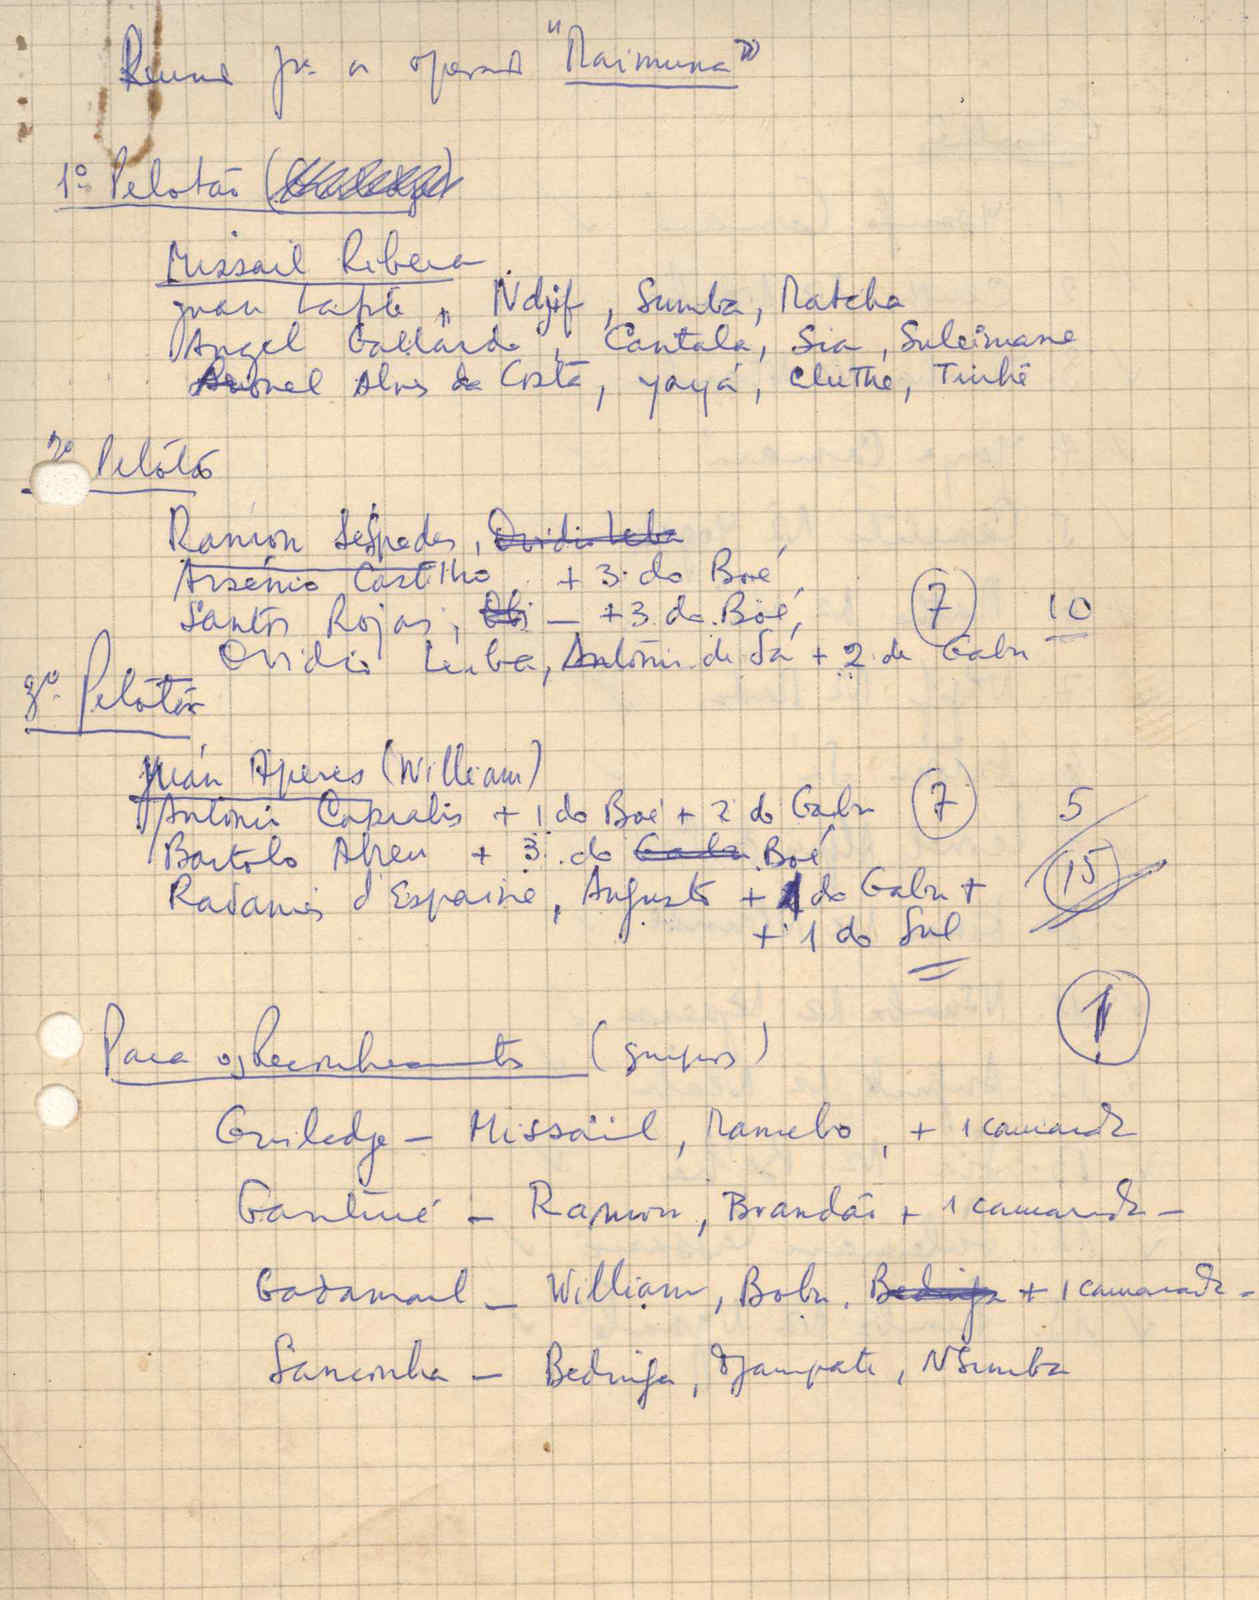 Reune pª a operaçã "Maimuna"
1º Pelotão
Missail Ribera
Juan , Ndjif, Sumba, Matcha
Angel Gallardo, Cantala, Sia, Suleimane
Alves da Costa, Yayá, Cluthe, Tinhé
2º Pelotão
Ramon Sespedes, Ovidio Leba
Arsénio Castilho + 3 do Boé
Santos Rojas, — + 3 do Boé, 7 10
Ovidio Leiba, António de Sá + 2 de Gabu
3º Pelotão
Juán Aperes (William)
António Capralis + 1 do Boé + 2 do Gabu 7 5
Bartolo Abreu + 3 do Gabu Boé 15
Radamés d'Espaine, Augusto + 1 do Gabu +
+ 1 do Sul
1
Para os Reconhecimentos (grupos)
Guiledge — Missáil, + 1 camarada
Ganturé — Ramon, Brandão + 1 camarada —
Gadamael — William, Bobu, Bedinga + 1 camarada —
Sanconha — Bedinga, Djampate, NSumba